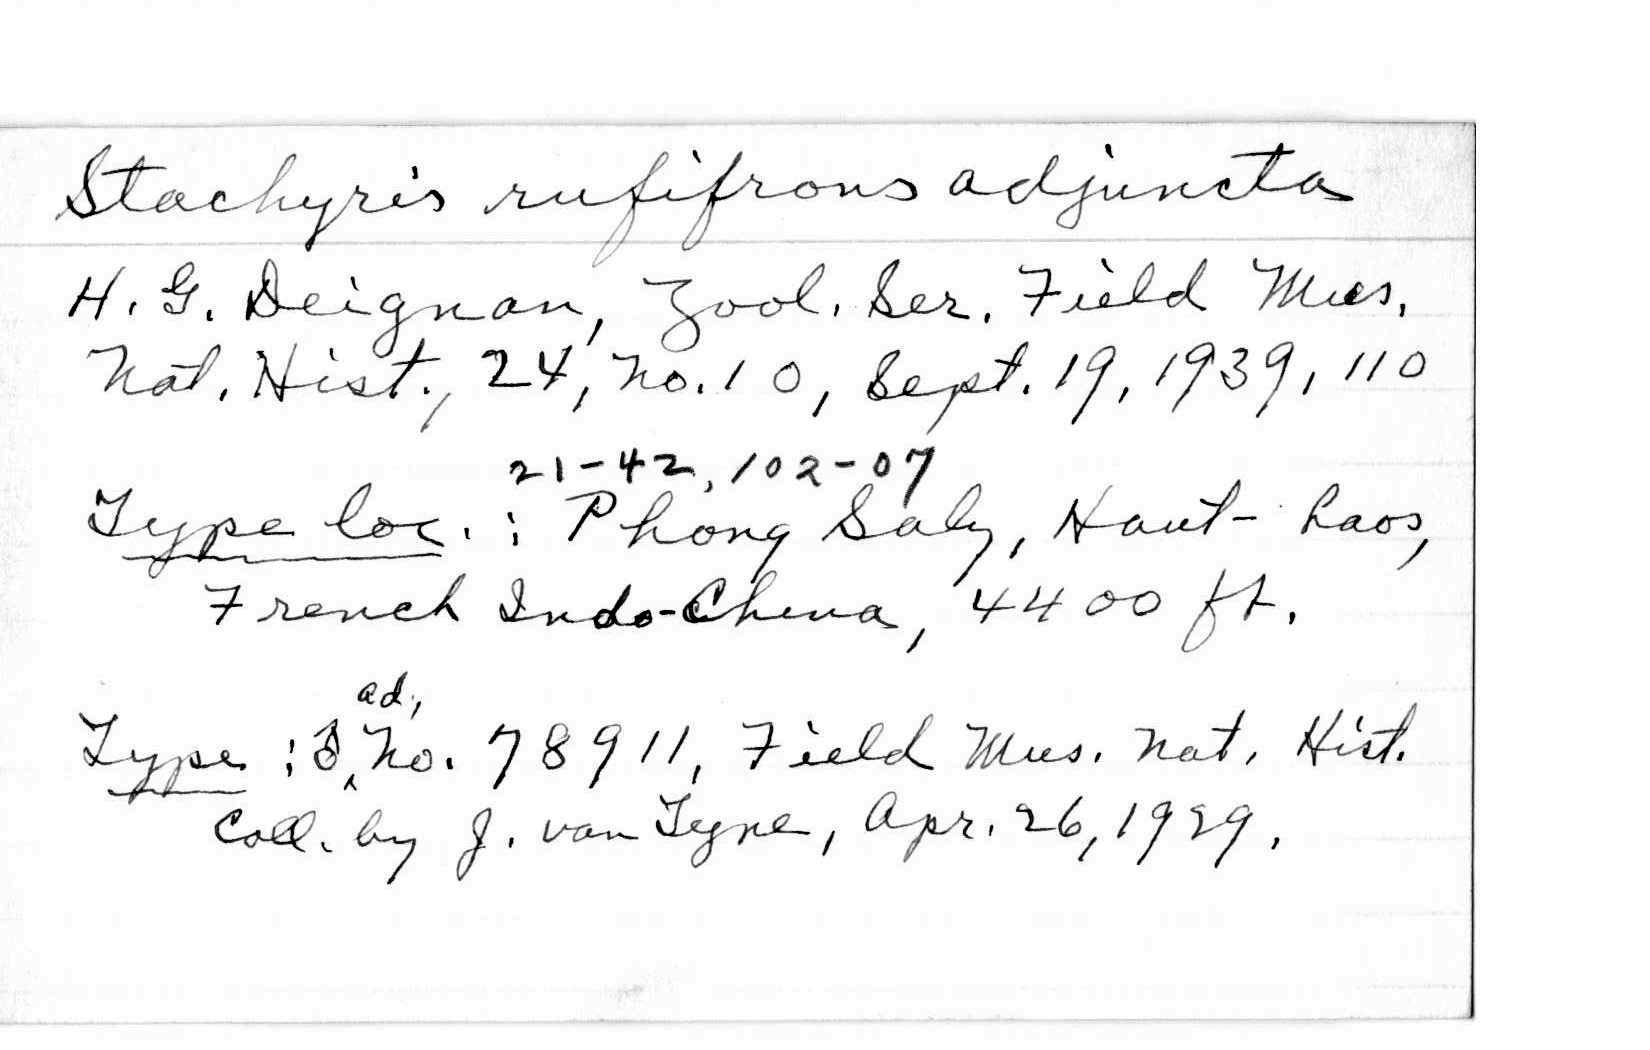 Stachyris rufifrons adjuncta
H. G. Deignan, Zool. Ser. Field Mus.
Nat. Hist., 24, No. 10, Sept. 19, 1939, 110
21-42, 102-07
Type loc. : Phong Saly, Haut-Laos,
French Indo-China, 4400 ft.
ad.,
Type : ♂, No. 78911, Field Mus. Nat. Hist.
Coll. by J. van Tyne, Apr. 26, 1929.